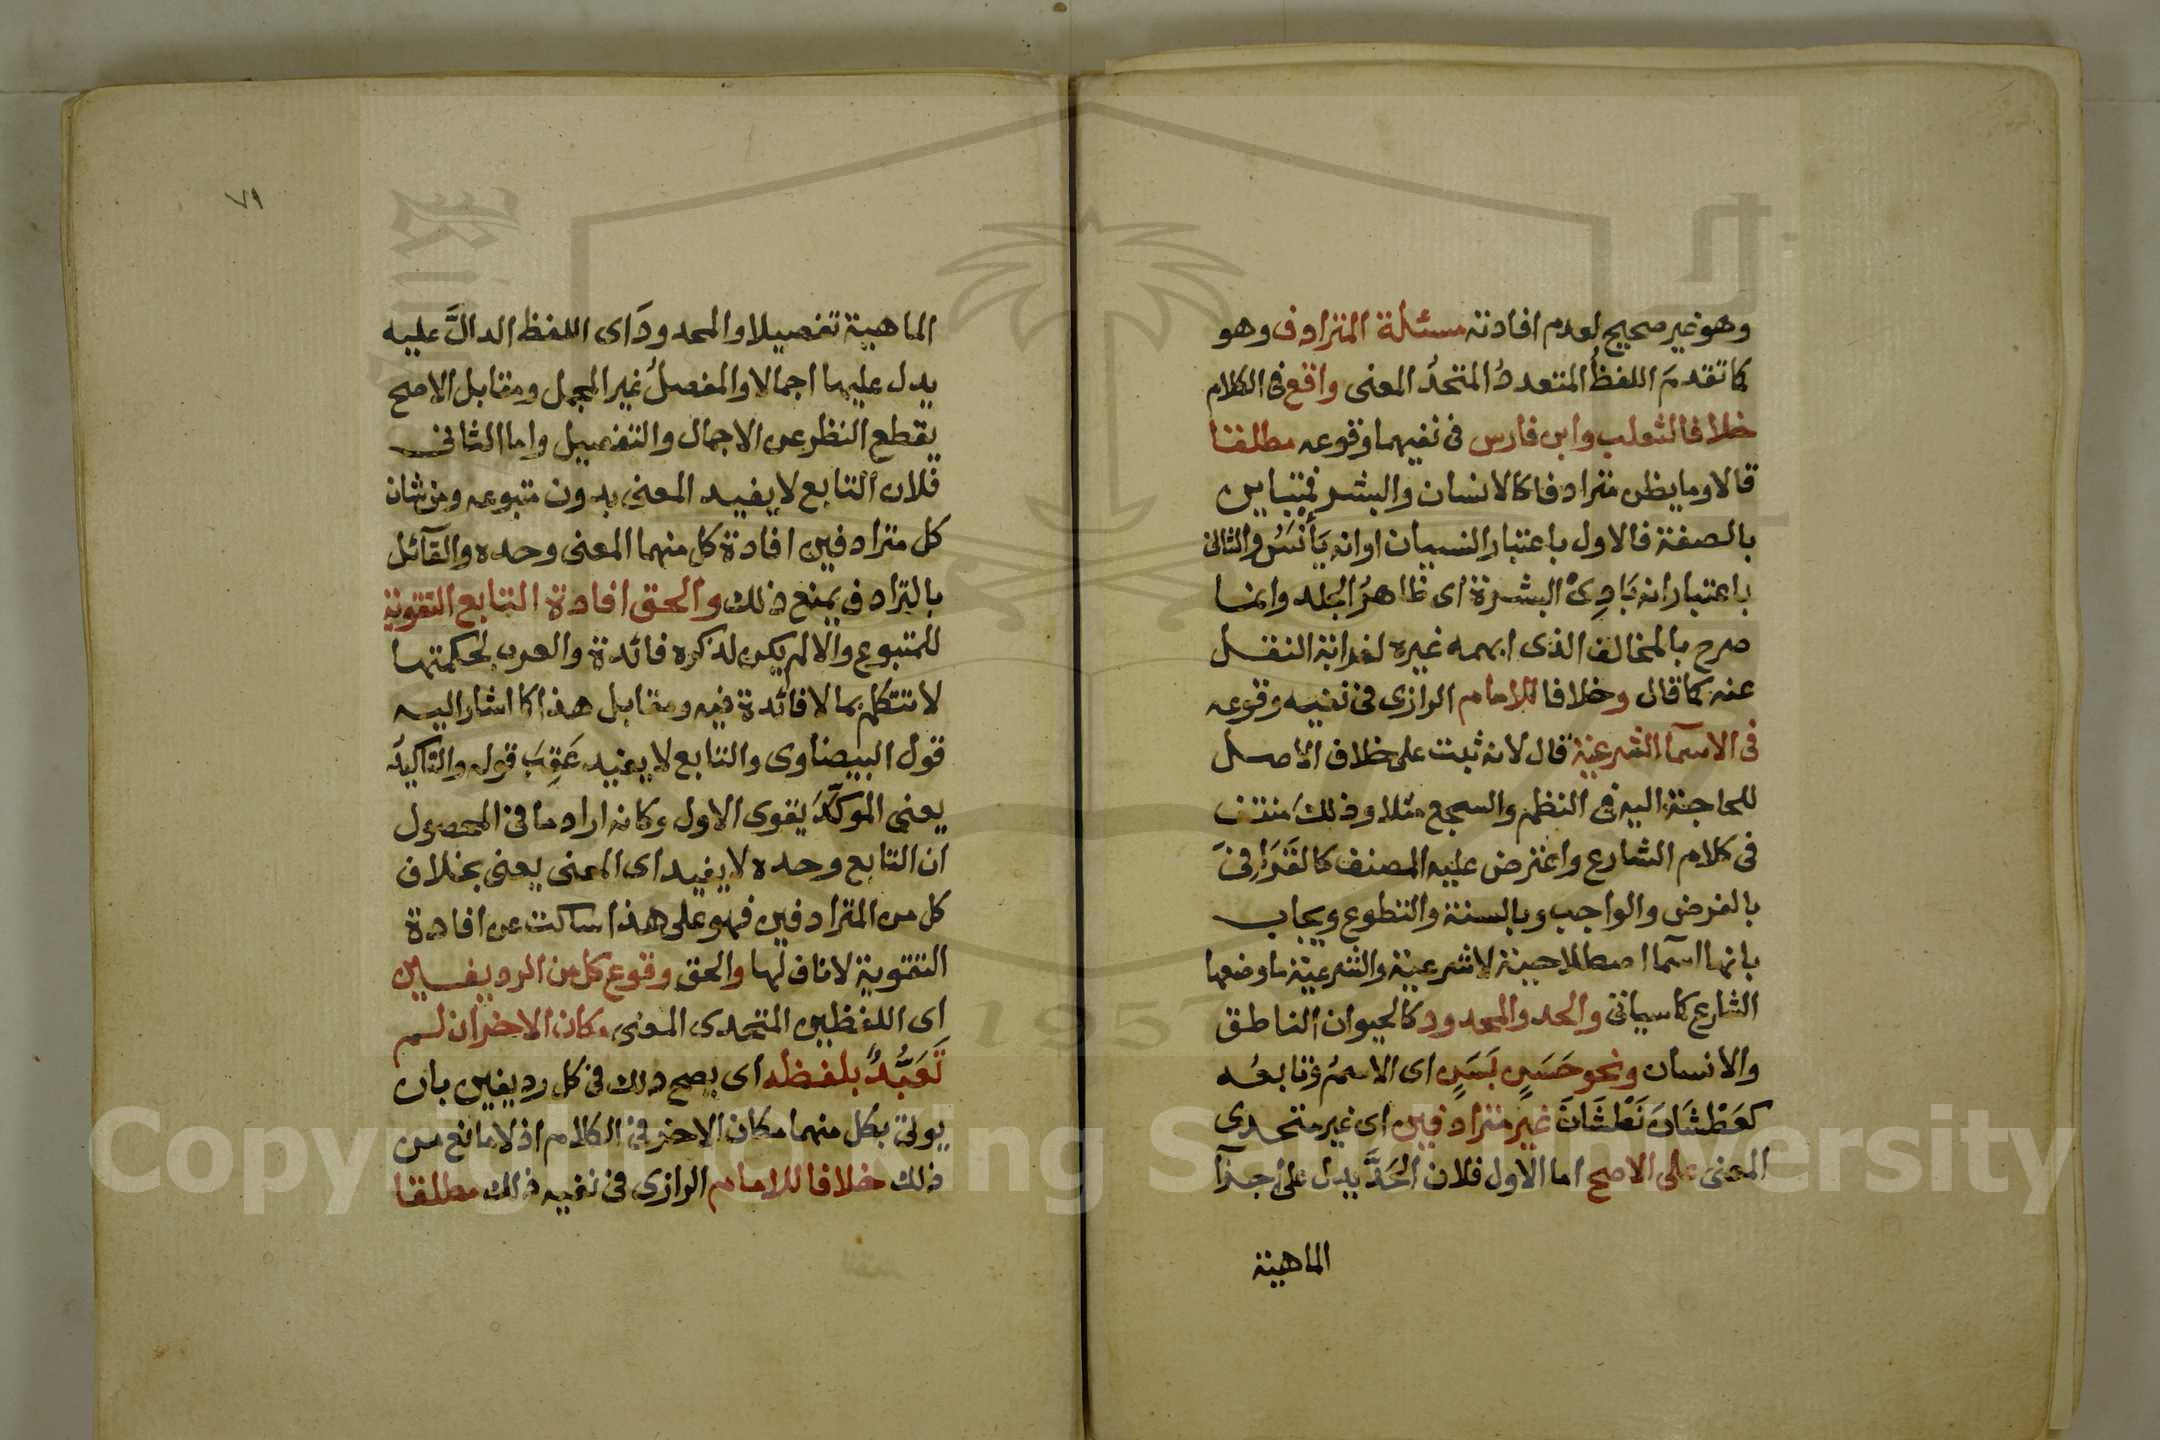 وهو غير صحيح لعدم افادته مسئلة المترادف وهو
كما تقدم اللفظُ المتعددُ المتحدُ المعنى واقع فى الكلام
خلافا لثعلب وابن فارس فى نفيهما وقوعه مطلقا
قالا وما يظن مترادفا كالانسان والبشر فمتباين
بالصفة فالاول باعتبار النسيان او انه يَأْنَسُ والثانى
باعتبار انه بَادِىْ البشرة اى ظاهرُ الجلد وانما
صرح بالمخالف الذى ابهمه غيره لغرابة النقل
عنه كما قال وخلافا للامام الرازى فى نفيه وقوعه
فى الاسمآ الشرعية قال لانه ثبت على خلاف الاصل
للحاجة اليه فى النظم والسجع مثلا وذلك منتف
فى كلام الشارع واعترض عليه المصنف كالقَرَافِىّ
بالفرض والواجب وبالسنة والتطوع ويجاب
بانها اسمآ اصطلاحية لا شرعية والشرعية ما وضعها
الشارع كما سياتى والحد والمحدود كالحيوان الناطق
والانسان ونحو حَسَنٍ بَسَنٍ اى الاسمُ وتابعُه
كعَطْشَانَ نَطْشَانَ غير مترادفين اى غير متحدى
المعنى على الاصح اما الاول فلان الحَدَّ يدل على اجزآ
الماهية
٧٩
الماهية تفصيلا والمحدودَ اى اللفظ الدالَّ عليه
يدل عليها اجمالا والمفصلُ غير المجمل ومقابل الاصح
يقطع النظر عن الاجمال والتفصيل واما الثانى
فلان التابع لا يفيد المعنى بدون متبوعه ومن شان
كل مترادفين افادة كل منهما المعنى وحده والقآئل
بالترادف يمنع ذلك والحق افادة التابع التقوية
للمتبوع والا لم يكن لذكره فائدة والعرب لحكمتها
لا تتكلم بما لا فائدة فيه ومقابل هذا كما اشار اليه
قول البيضاوى والتابع لا يفيد عَقِبَ قوله والتاكيدُ
يعنى الموكِّدَ يقوى الاول وكانه اراد ما فى المحصول
ان التابع وحده لا يفيد اى المعنى يعنى بخلاف
كل من المترادفين فهو على هذا ساكت عن افادة
التقوية لا ناف لها والحق وقوع كل من الرديفين
اى اللفظين المتحدى المعنى مكان الاخر ان لم
تَعَبُّدٌ بلفظه اى يصح ذلك فى كل رديفين بان
يوتى بكل منهما مكان الاخر فى الكلام اذ لا مانع من
ذلك خلافا للامام الرازى فى نفيه ذلك مطلقا
1957
Copyright © King Saud University